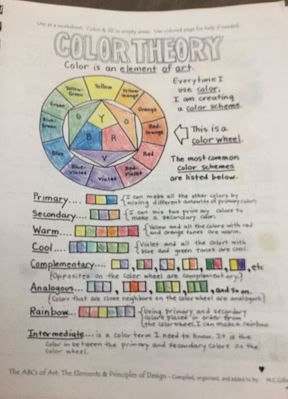 Use as a worksheet. Color & fill in empty areas. Use colored page for help if needed.
COLOR THEORY
Color is an element of art.
Everytime I
use color,
I am creating
a color scheme.
Yellow
Yellow-Green
Yellow-Orange
Green
Orange
Blue-Green
Red-Orange
Blue
Red
Blue-Violet
Violet
Red-Violet
Y
G
O
B
R
V
This is a
color wheel.
The most common
color schemes
are listed below.
Primary.... I can make all the other colors by
mixing different amounts of primary colors.
Secondary.... I can mix two primary colors to
make a secondary color.
Warm.... Yellow and all the colors with red
and orange tones are warm.
Cool.... Violet and all the colors with
blue and green tones are cool.
Complementary.... , etc
(Opposites on the color wheel are complementary.)
Analogous... , and so on.
(Colors that are close neighbors on the color wheel are analogous.)
Rainbow... Using primary and secondary
colors placed in order from
the color wheel, I can make a rainbow.
Intermediate... is a color term I need to know. It is the
color in between the primary and secondary colors on the
color wheel.
The ABCs of Art: The Elements & Principles of Design - Compiled, organized, and added to by M.C.